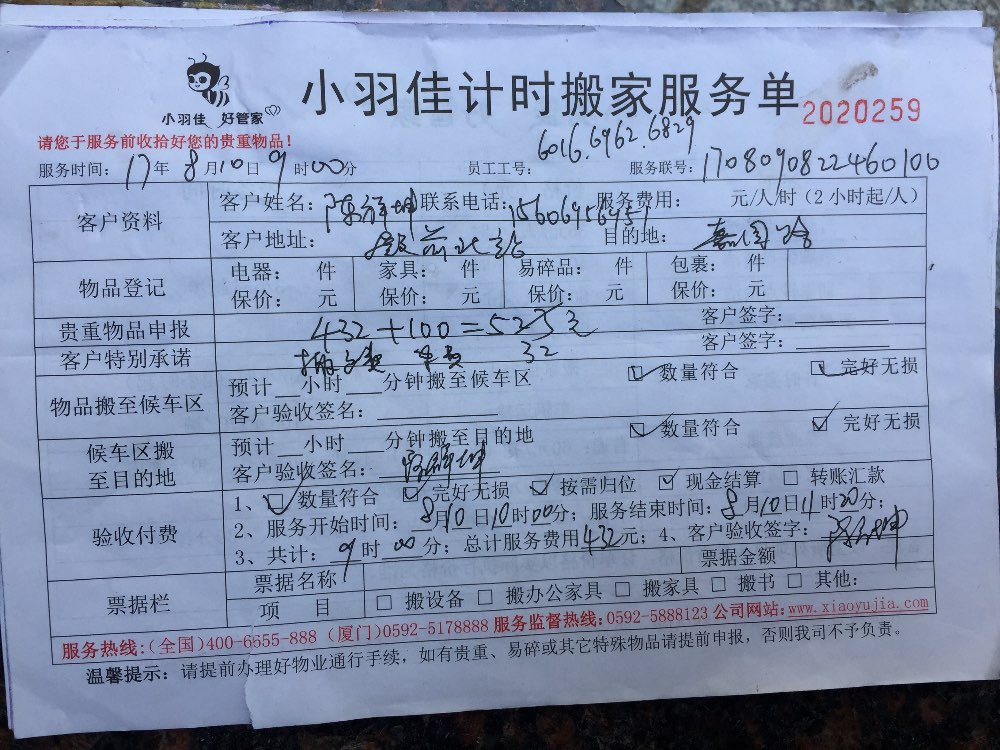 小羽佳 好管家
小羽佳计时搬家服务单
2020259
请您于服务前收拾好您的贵重物品！
6016.6962.6829
服务时间：17年8月10日9时00分 员工工号： 服务联号：1708090822460100
客户资料
客户姓名： 联系电话：15606956951 服务费用： 元/人/时（2小时起/人）
客户地址： 目的地：
物品登记
电器： 件 家具： 件 易碎品： 件 包裹： 件
保价： 元 保价： 元 保价： 元 保价： 元
贵重物品申报 432+100= 客户签字：
客户特别承诺 32 客户签字：
物品搬至候车区
预计__小时__分钟搬至候车区 数量符合 完好无损
客户验收签名：
候车区搬至目的地
预计__小时__分钟搬至目的地 数量符合 完好无损
客户验收签名：
验收付费
1、数量符合 完好无损 按需归位 现金结算 转账汇款
2、服务开始时间：8月10日10时00分；服务结束时间：8月10日11时20分；
3、共计：9时00分；总计服务费用432元；4、客户验收签字：
票据栏
票据名称 票据金额
项 目 搬设备 搬办公家具 搬家具 搬书 其他：
服务热线：（全国）400-6655-888（厦门）0592-5178888 服务监督热线：0592-5888123 公司网站：www.xiaoyujia.com
温馨提示：请提前办理好物业通行手续，如有贵重、易碎或其它特殊物品请提前申报，否则我司不予负责。